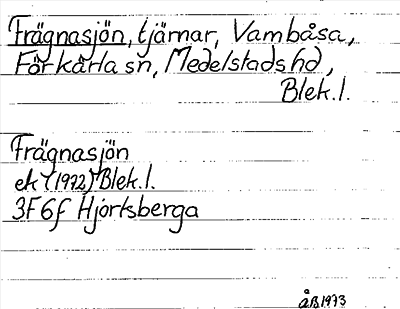 Frägnasjön, tjärnar, Vambåsa,
Förkärla sn, Medelstads hd,
Blek.l.
Frägnasjön
ek (1972) Blek.l.
3F6f Hjortsberga
ÅB 1973